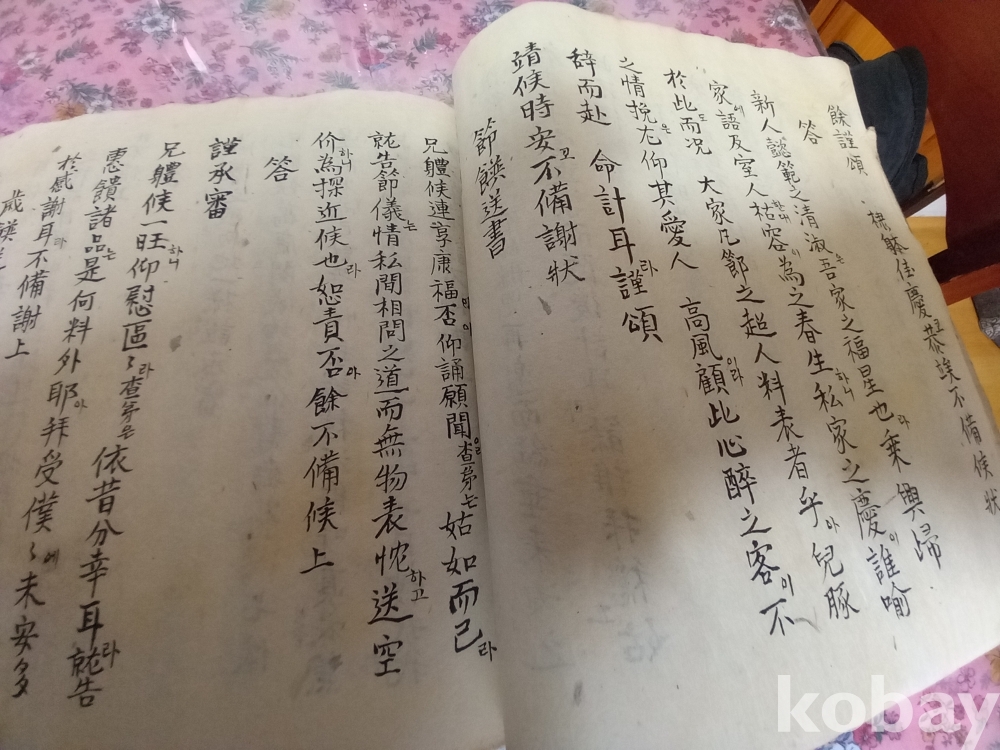 餘謹頌
禄繁佳慶恭竢不備候状
答
新人懿範之清淑은吾家之福星也라乘興歸
家에語及室人枯容이為之春生하니私家之慶이誰喻
於此而况도大家凡節之超人料表者乎아兒豚
之情挽은尤仰其愛人高風이라顧此心醉之客이不
辞而赴命計耳라謹頌
靖候時安고不備謝状
節饌送書
兄軆候連享康福否仰誦願聞이라查弟는姑如而已라
就告節儀는情私間相問之道而無物表忱하고送空
价為探近候也라恕責否아餘不備候上
答
謹承審
兄軆候一旺하니仰慰區〻라查弟은依昔分幸耳라就告
惠饋諸品는是何料外耶아拜受僕〻에未安多
於感謝耳라不備謝上
歲饌送
kobay